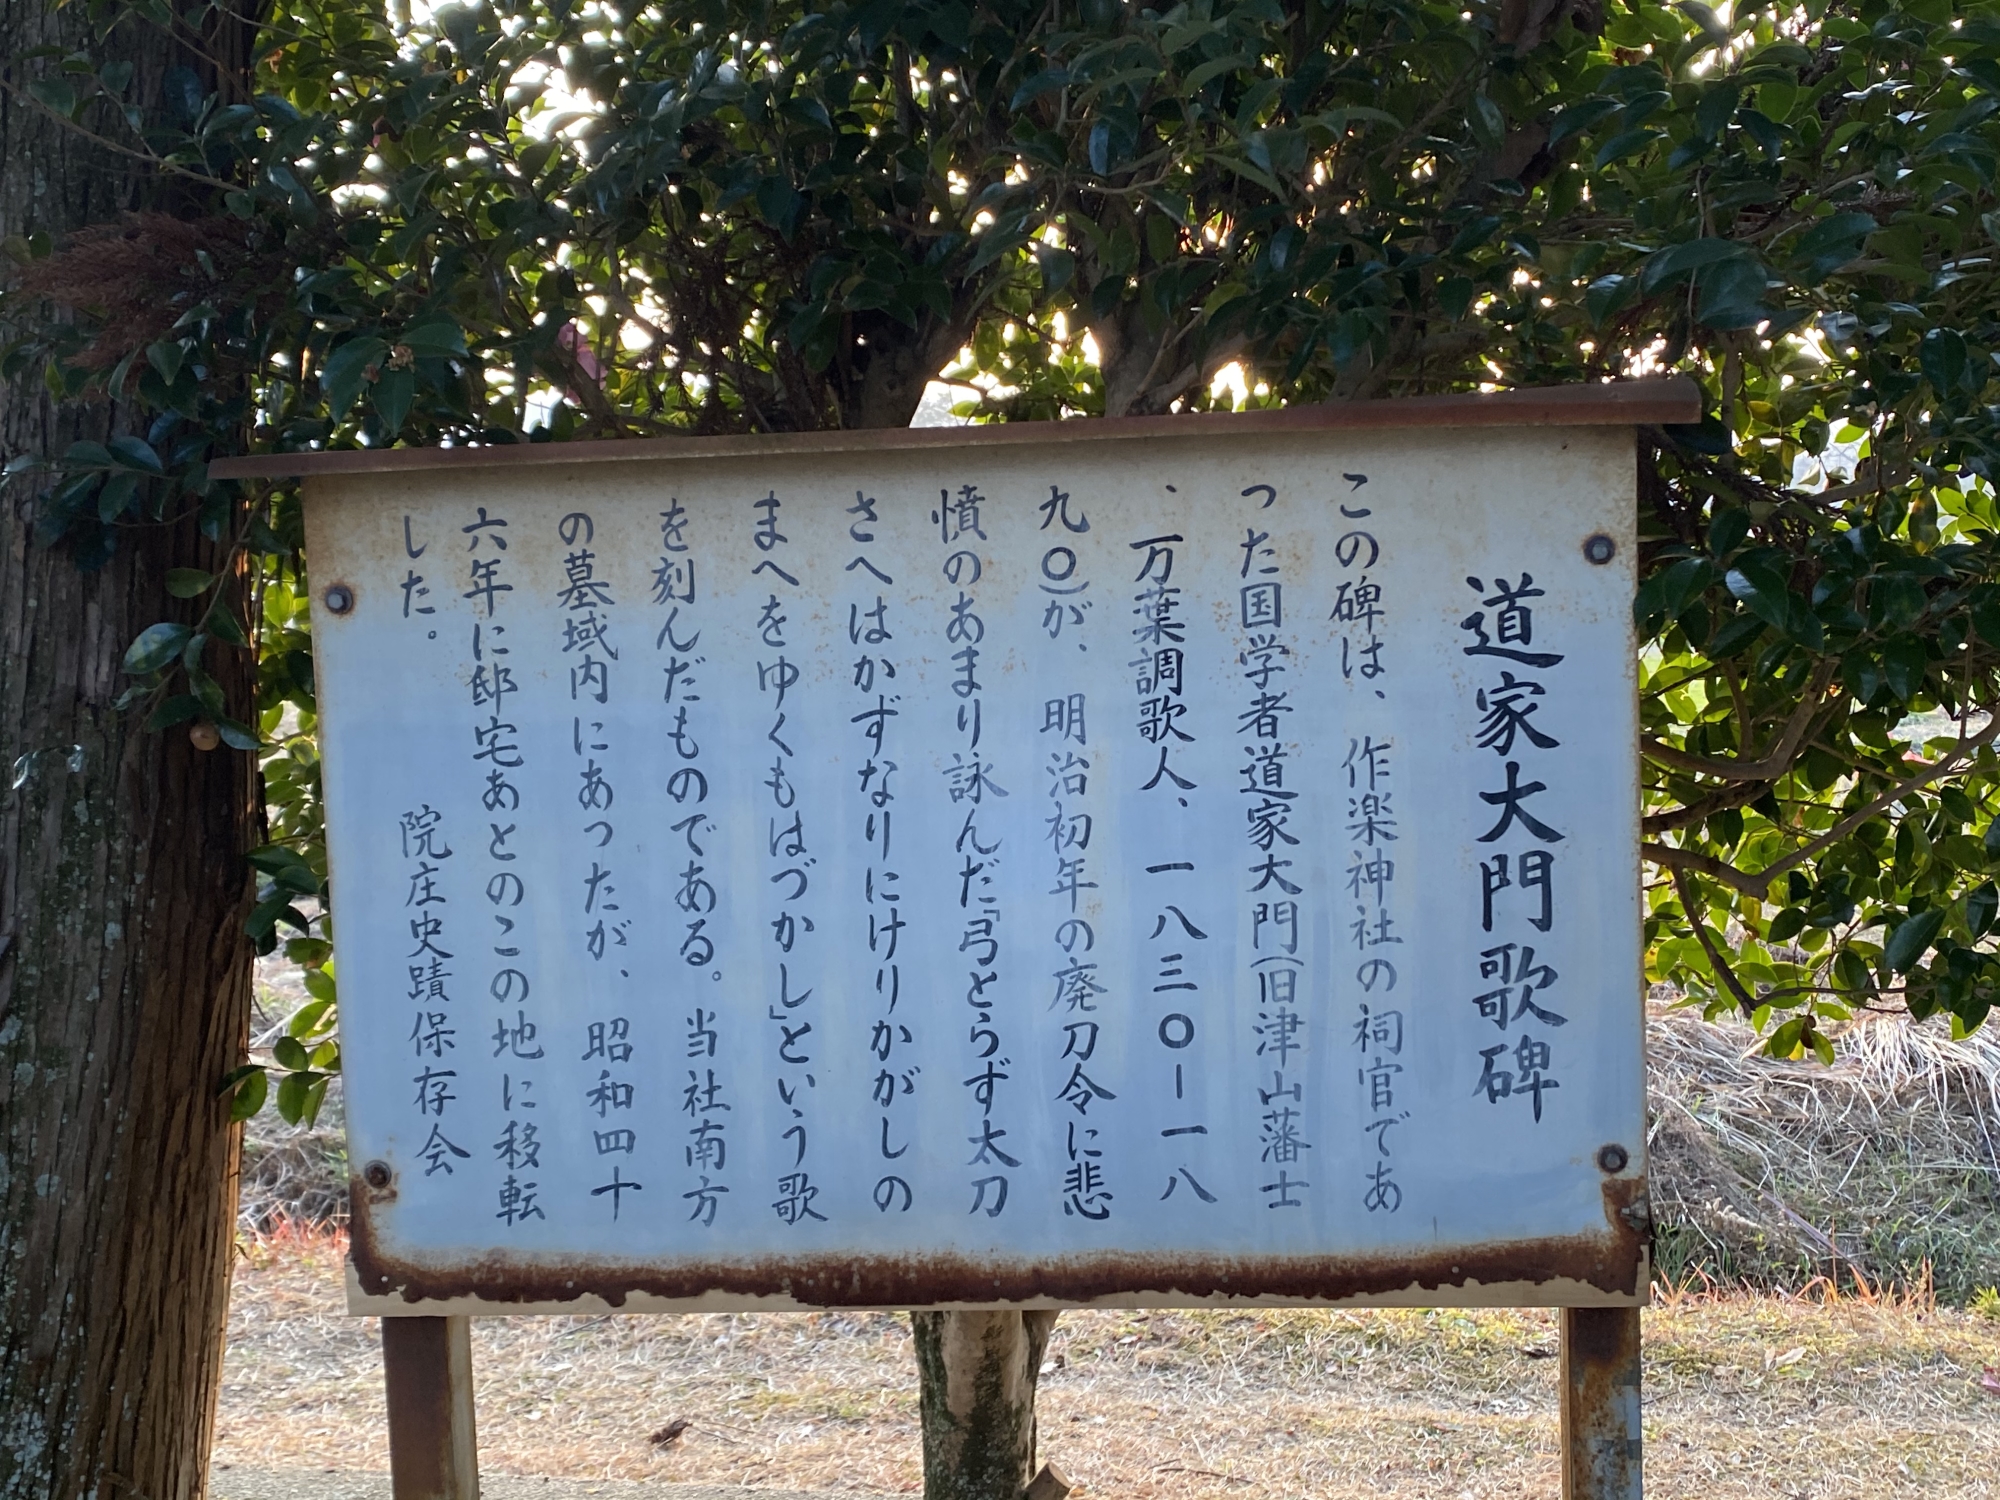 道家大門歌碑
この碑は、作楽神社の祠官であ
った国学者道家大門(旧津山藩士
、万葉調歌人、一八三〇ー一八
九〇)が、明治初年の廃刀令に悲
憤のあまり詠んだ「弓とらず太刀
さへはかずなりにけりかがしの
まへをゆくもはづかし」という歌
を刻んだものである。当社南方
の墓域内にあったが、昭和四十
六年に邸宅あとのこの地に移転
した。
院庄史蹟保存会